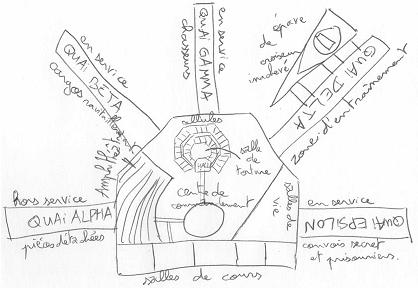 en service
QUAI GAMMA
chasseurs
épave
de
croiseur
en service
QUAI BETA
cargos ravitaillement
QUAI DELTA
zone d'entraînement
cellules
HALL
salle
de
torture
Amphithéâtre
centre de
commandement
salles de
vie
hors service
QUAI ALPHA
pièces détachées
en service
QUAI EPSILON
convois secret
et prisonniers.
salles de cours